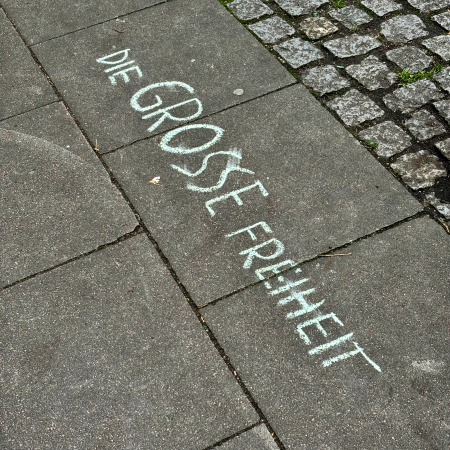 DIE GROSSE FREIHEIT